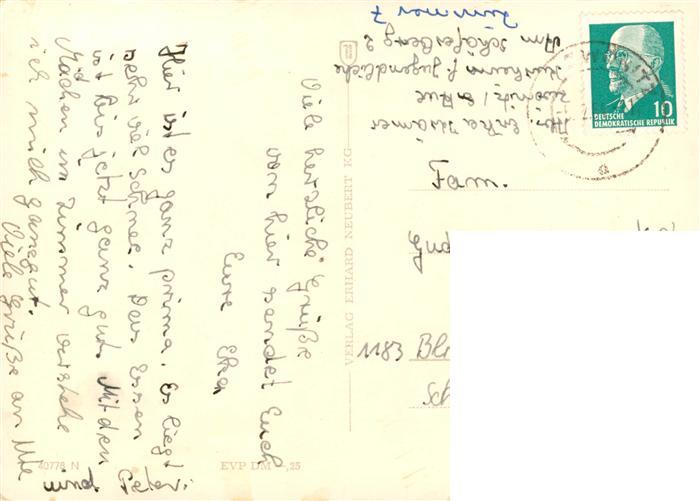 Viele herzliche Grüße
von hier sendet Euch
Eure Eka
Hier ist es ganz prima. Es liegt
sehr viel Schnee. Das Essen
ist bis jetzt ganz gut. Mit den
Mädchen im Zimmer verstehe
ich mich ganz gut.
Viele Grüße an Ute
und Peter.
Zwönitz / Aue
Kurheim f. Jugendliche
Am Schäferberg 2
Zimmer 7
Fam.
1183
VERLAG ERHARD NEUBERT KG
40778 N
EVP DM -,25
10
DEUTSCHE
DEMOKRATISCHE REPUBLIK